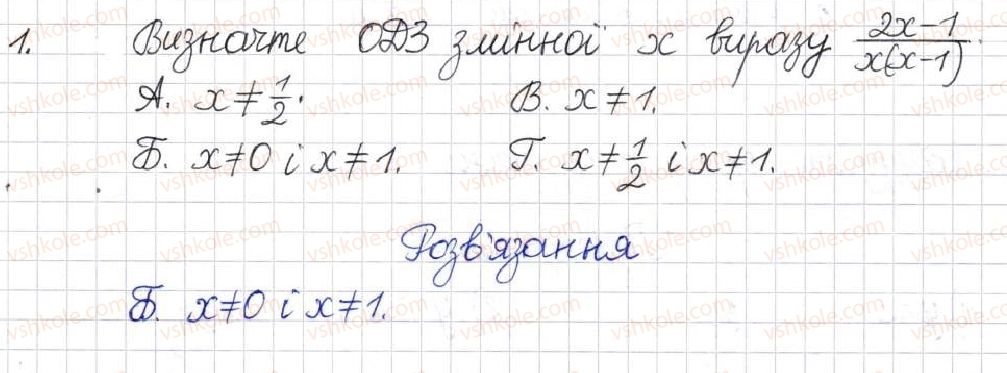 1. Визначте ОДЗ змінної x виразу (2x-1)/(x(x-1)).
А. x≠1/2. В. x≠1.
Б. x≠0 і x≠1. Г. x≠1/2 і x≠1.
Розв'язання
Б. x≠0 і x≠1.